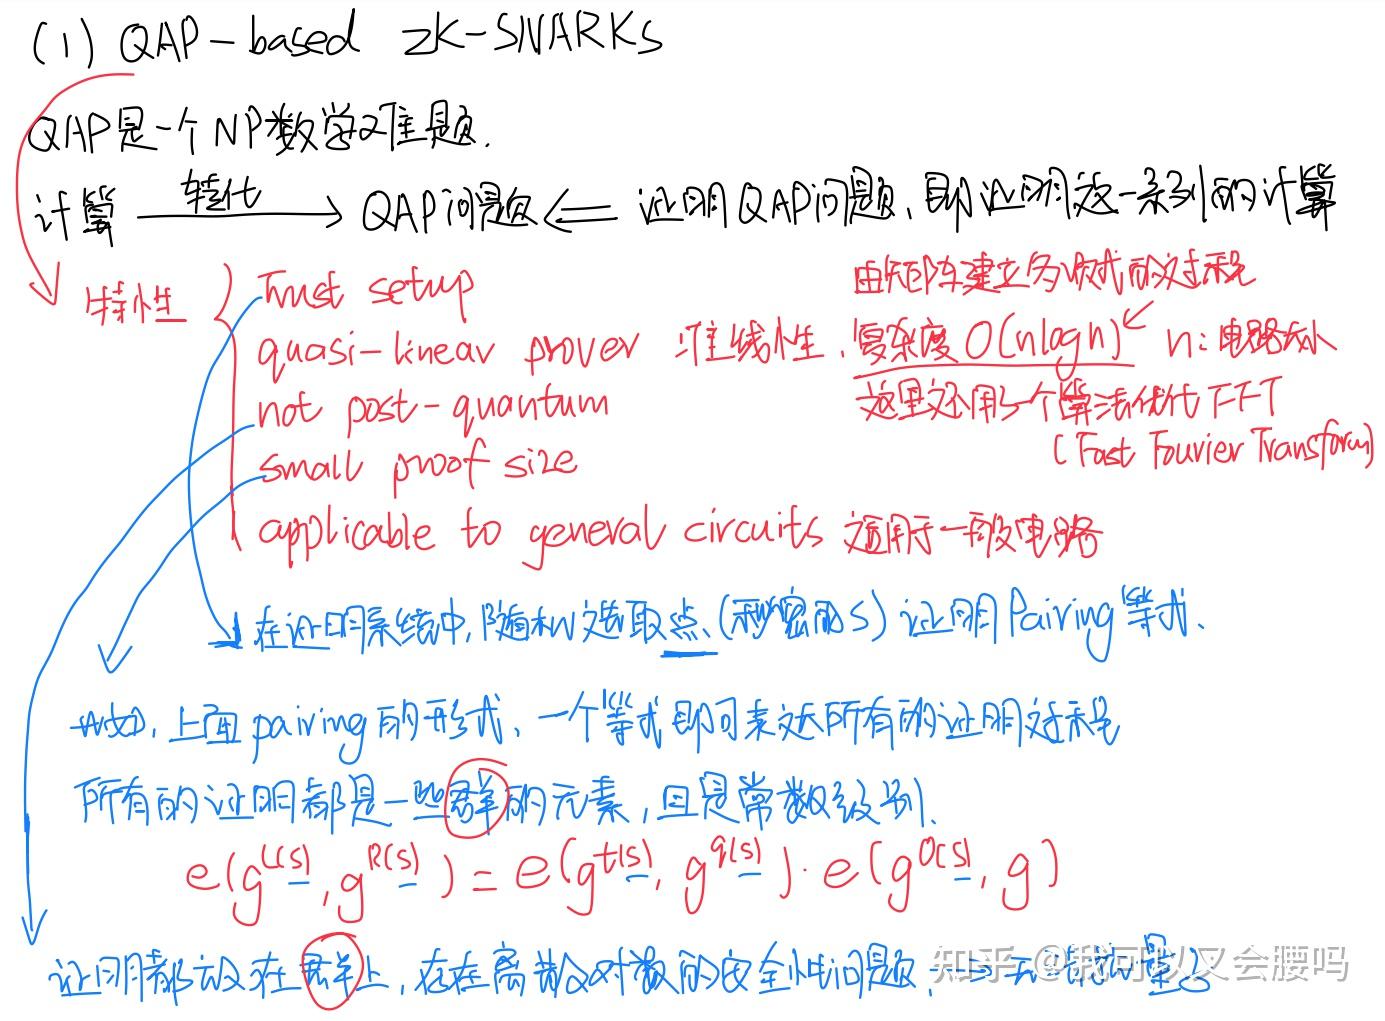 (1) QAP-based zk-SNARKs
QAP是一个NP数学难题.
计算 转化 QAP问题 证明QAP问题、即证明这一系列的计算
特性
Trust setup
由矩阵建立多项式的过程
quasi-linear prover 准线性、复杂度 O(nlogn) n:电路大小
not post-quantum 这里还用了一个算法优化 FFT
(Fast Fourier Transform)
small proof size
applicable to general circuits 适用于一般电路
在证明系统中,随机选取点、(秘密的S) 证明Pairing等式、
比如, 上面pairing的形式、一个等式即可表达所有的证明过程
所有的证明都是一些群的元素,且是常数级别.
e(g^L(s), g^R(s)) = e(g^t(s), g^q(s))·e(g^O(s), g)
证明都放在群上,存在离散对数的安全性问题、
知乎 @我可以又会腰吗